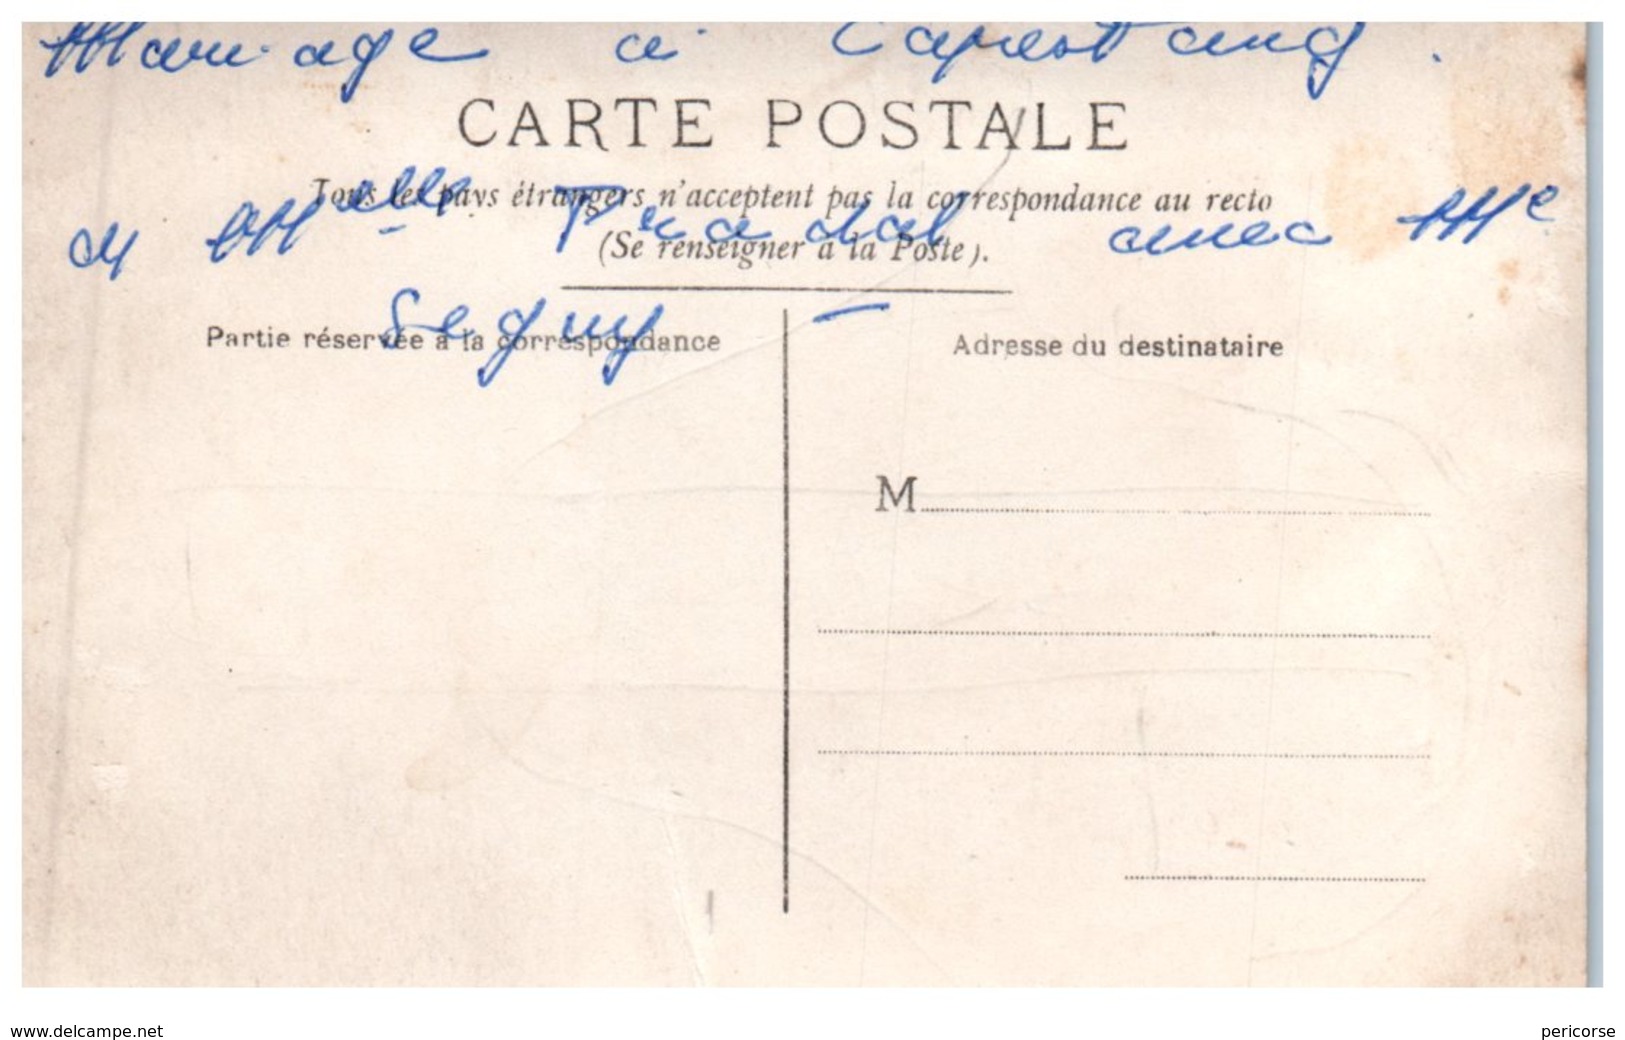 Mariage à Capestang.
CARTE POSTALE
Tous les pays étrangers n'acceptent pas la correspondance au recto
(Se renseigner à la Poste).
de Melle Pradal avec Me
Seguy –
Partie réservée à la correspondance
Adresse du destinataire
M
www.delcampe.net
pericorse